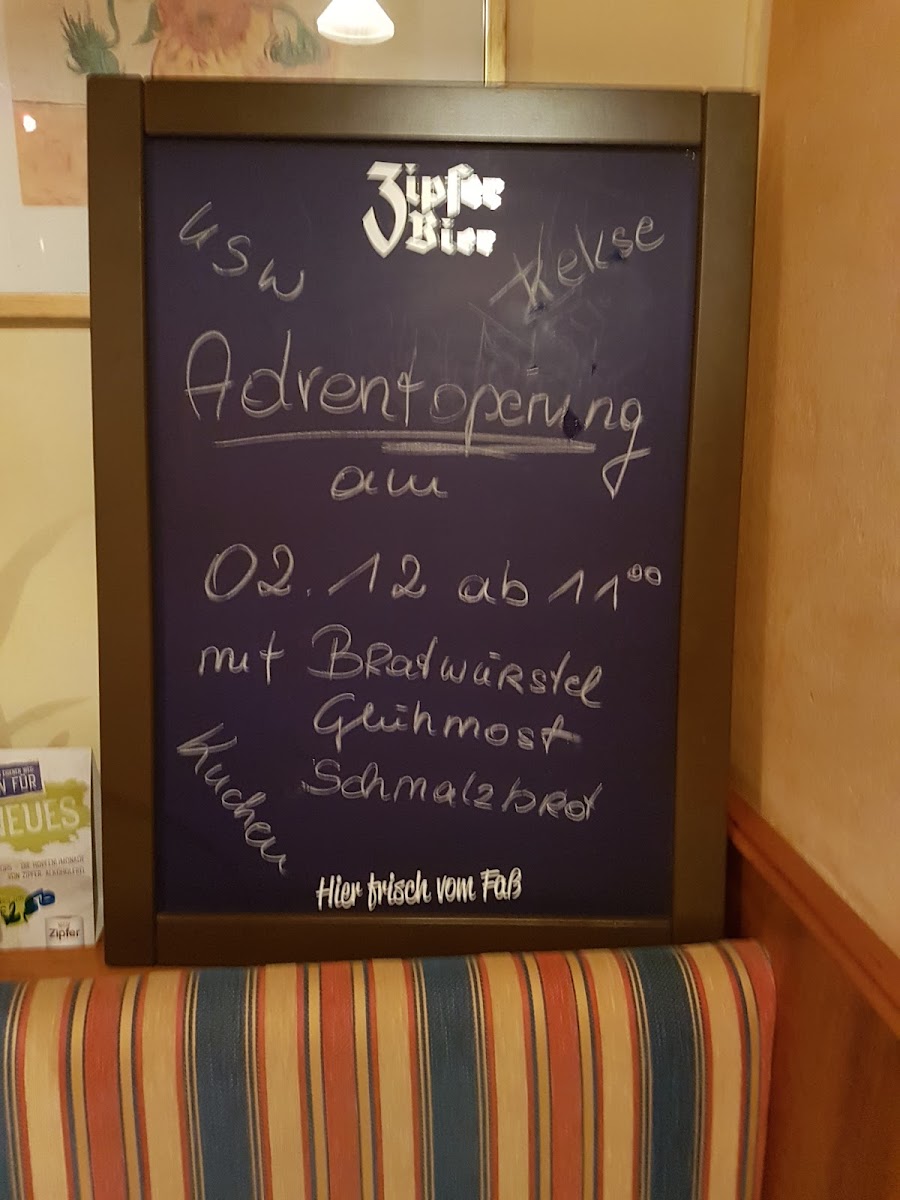 Zipfer
Bier
usw
Kekse
Adventopening
am
02.12 ab 11⁰⁰
mit Bratwürstel
Glühmost
Schmalzbrot
Kuchen
Hier frisch vom Faß
N FÜR
NEUES
Zipfer